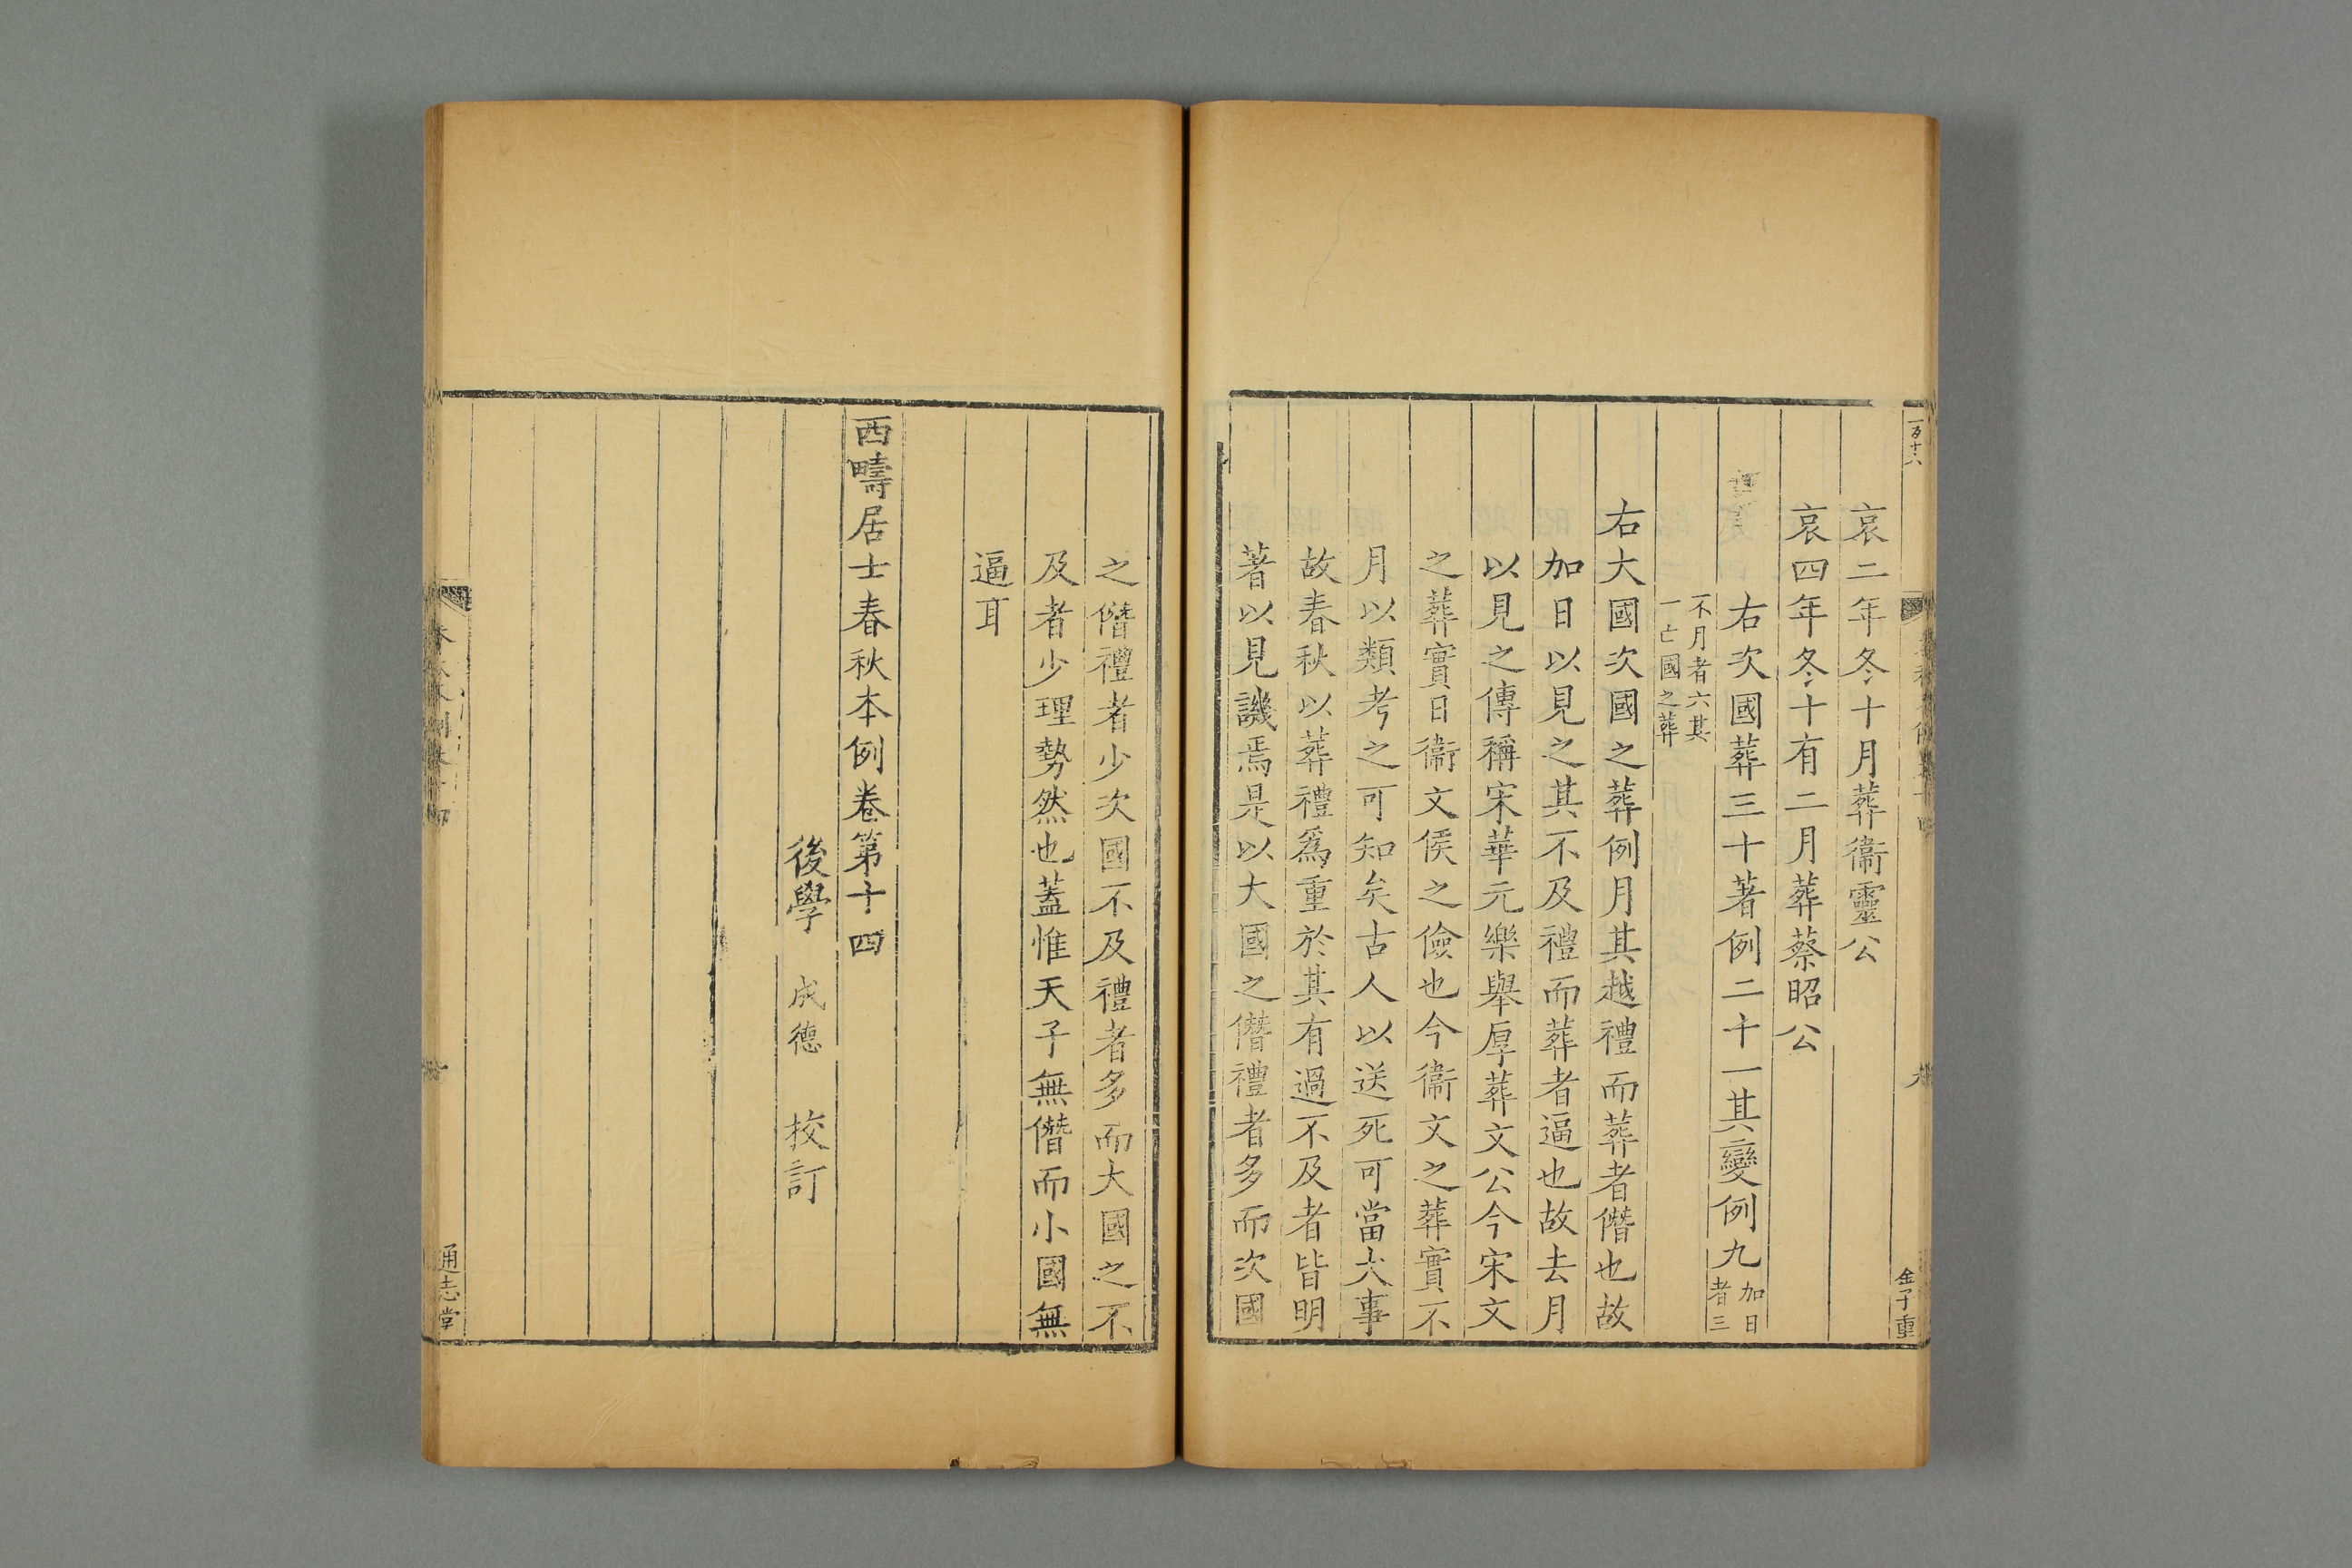 一百十六
金子重
哀二年冬十月葬衞靈公
哀四年冬十有二月葬蔡昭公
右次國葬三十著例二十一其變例九加日者三
不月者六其一亡國之葬
右大國次國之葬例月其越禮而葬者僭也故
加日以見之其不及禮而葬者逼也故去月
以見之傳稱宋華元樂舉厚葬文公今宋文
之葬實日衞文侯之儉也今衞文之葬實不
月以類考之可知矣古人以送死可當大事
故春秋以葬禮爲重於其有過不及者皆明
著以見譏焉是以大國之僭禮者多而次國
之僭禮者少次國不及禮者多而大國之不
及者少理勢然也蓋惟天子無僭而小國無
逼耳
西疇居士春秋本例卷第十四
後學 成德 校訂
通志堂